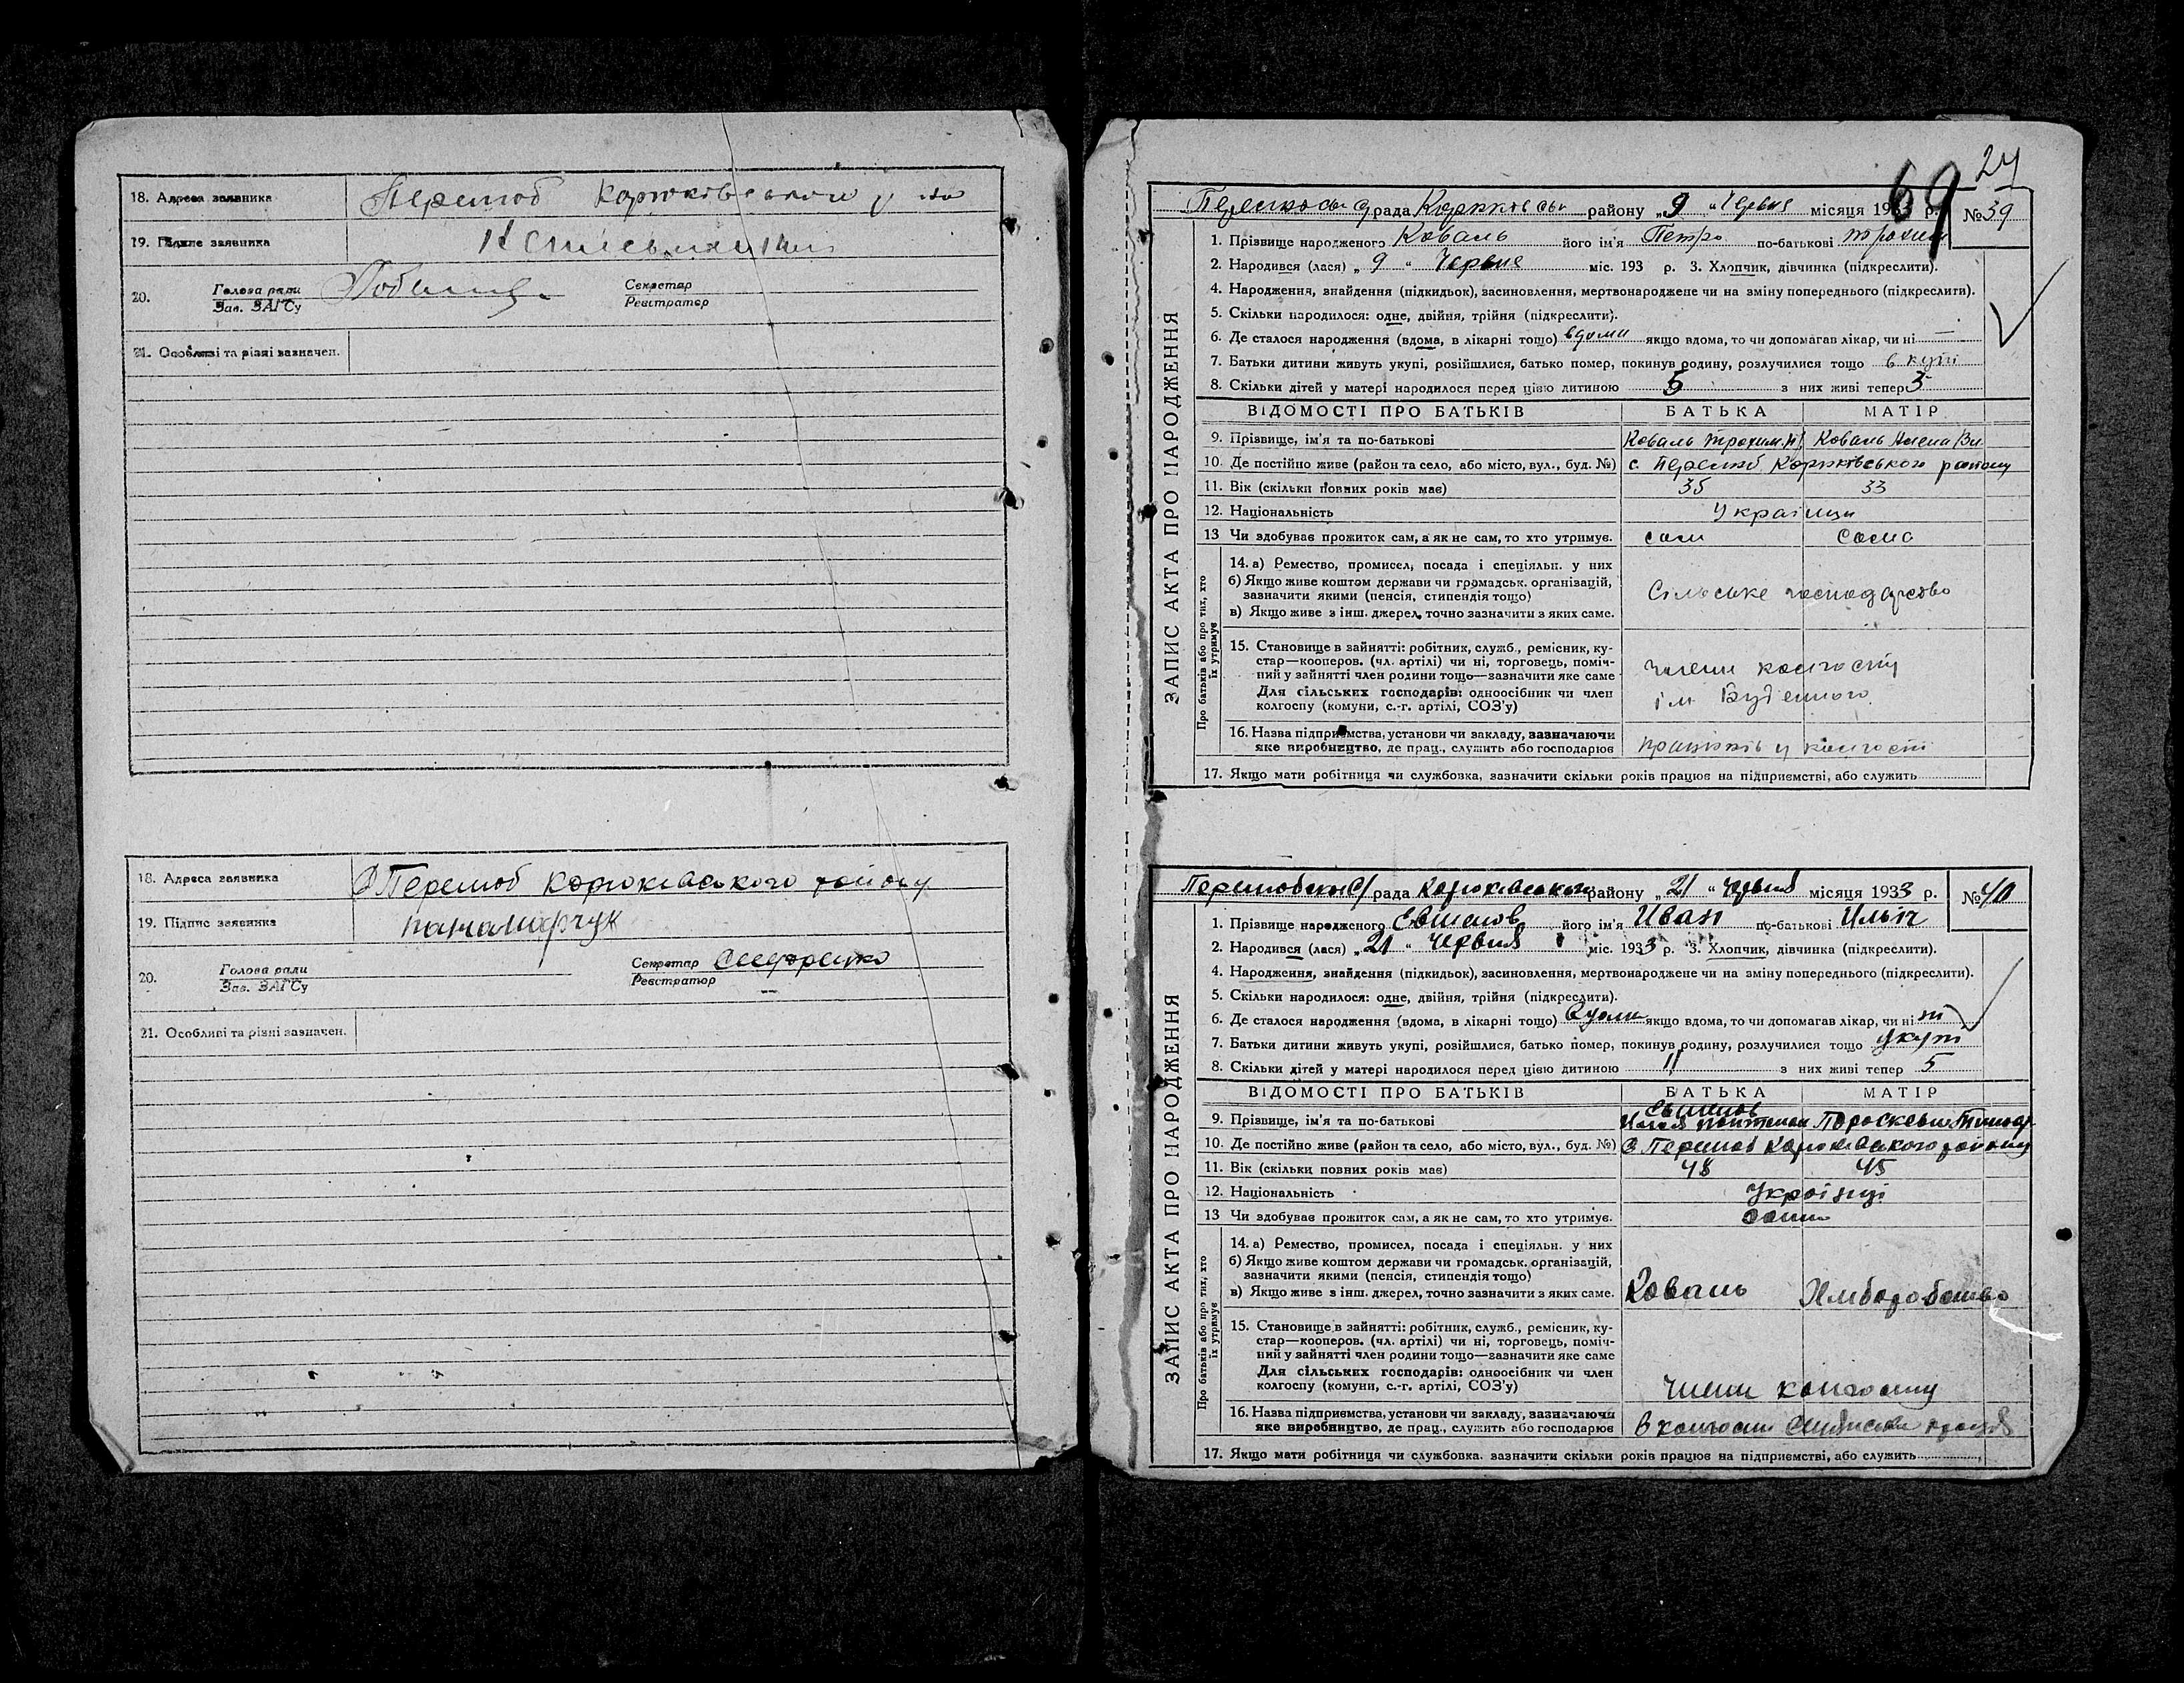 18. Адреса заявника Перелюб Корюківського
19. Підпис заявника
20. Голова ради
Зав. ЗАГСу
Секретар
Реєстратор
21. Особливі та різні зазначен.
18. Адреса заявника Перелюб Корюківського району
19. Підпис заявника
20. Голова ради
Зав. ЗАГСу
Секретар Сидоренко
Реєстратор
21. Особливі та різні зазначен.
24
69
рада району „9“ Червня місяця 193 р. №39
ЗАПИС АКТА ПРО НАРОДЖЕННЯ
1. Прізвище народженого Коваль його ім'я Петро по-батькові Трохим
2. Народився (лася) „9“ Червня міс. 193 р. 3. Хлопчик, дівчинка (підкреслити).
4. Народження, знайдення (підкидьок), засиновлення, мертвонароджене чи на зміну попереднього (підкреслити).
5. Скільки народилося: одне, двійня, трійня (підкреслити).
6. Де сталося народження (вдома, в лікарні тощо) вдома якщо вдома, то чи допомагав лікар, чи ні —
7. Батьки дитини живуть укупі, розійшлися, батько помер, покинув родину, розлучилися тощо в купі
8. Скільки дітей у матері народилося перед цією дитиною 5 з них живі тепер 3
ВІДОМОСТІ ПРО БАТЬКІВ БАТЬКА МАТІР
9. Прізвище, ім'я та по-батькові Коваль Трохим Коваль
10. Де постійно живе (район та село, або місто, вул., буд. №) с. Перелюб Корюківського району
11. Вік (скільки повних років має) 35 33
12. Національність Українци
13 Чи здобуває прожиток сам, а як не сам, то хто утримує. сам сама
Про батьків або про тих, хто їх утримує
14. а) Ремество, промисел, посада і спеціяльн. у них
б) Якщо живе коштом держави чи громадськ. організацій,
зазначити якими (пенсія, стипендія тощо)
в) Якщо живе з інш. джерел, точно зазначити з яких саме.
Сільське господарство
15. Становище в зайнятті: робітник, служб., ремісник, ку-
стар—кооперов. (чл. артілі) чи ні, торговець, поміч-
ний у зайнятті член родини тощо—зазначити яке саме
Для сільських господарів: одноосібник чи член
колгоспу (комуни, с.-г. артілі, СОЗ'у)
члени колгоспу
ім Будьенного
16. Назва підприємства, установи чи закладу, зазначаючи
яке виробництво, де прац., служить або господарює
у колгоспі
17. Якщо мати робітниця чи службовка, зазначити скільки років працює на підприємстві, або служить
рада Корюківського району „21“ Червня місяця 1933 р. №40
ЗАПИС АКТА ПРО НАРОДЖЕННЯ
1. Прізвище народженого його ім'я Иван по-батькові Ильіч
2. Народився (лася) „21“ Червня міс. 1933 р. 3. Хлопчик, дівчинка (підкреслити).
4. Народження, знайдення (підкидьок), засиновлення, мертвонароджене чи на зміну попереднього (підкреслити).
5. Скільки народилося: одне, двійня, трійня (підкреслити).
6. Де сталося народження (вдома, в лікарні тощо) Вдома якщо вдома, то чи допомагав лікар, чи ні ні
7. Батьки дитини живуть укупі, розійшлися, батько помер, покинув родину, розлучилися тощо укупі
8. Скільки дітей у матері народилося перед цією дитиною 11 з них живі тепер 5
ВІДОМОСТІ ПРО БАТЬКІВ БАТЬКА МАТІР
9. Прізвище, ім'я та по-батькові
10. Де постійно живе (район та село, або місто, вул., буд. №) Перелюб Корюківського району
11. Вік (скільки повних років має) 48 45
12. Національність Українці
13 Чи здобуває прожиток сам, а як не сам, то хто утримує. сами
Про батьків або про тих, хто їх утримує
14. а) Ремество, промисел, посада і спеціяльн. у них
б) Якщо живе коштом держави чи громадськ. організацій,
зазначити якими (пенсія, стипендія тощо)
в) Якщо живе з інш. джерел, точно зазначити з яких саме.
Коваль Хлиборобство
15. Становище в зайнятті: робітник, служб., ремісник, ку-
стар—кооперов. (чл. артілі) чи ні, торговець, поміч-
ний у зайнятті член родини тощо—зазначити яке саме
Для сільських господарів: одноосібник чи член
колгоспу (комуни, с.-г. артілі, СОЗ'у)
члени колгоспу
16. Назва підприємства, установи чи закладу, зазначаючи
яке виробництво, де прац., служить або господарює
В колгоспи
17. Якщо мати робітниця чи службовка. зазначити скільки років працює на підприємстві, або служить